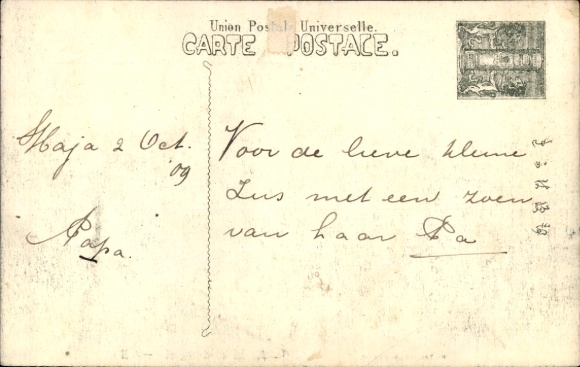 Union Postale Universelle.
CARTE POSTALE.
Haja 2 Oct.
'09
Papa.
Voor de lieve kleine
Zus met een zoen
van haar Pa